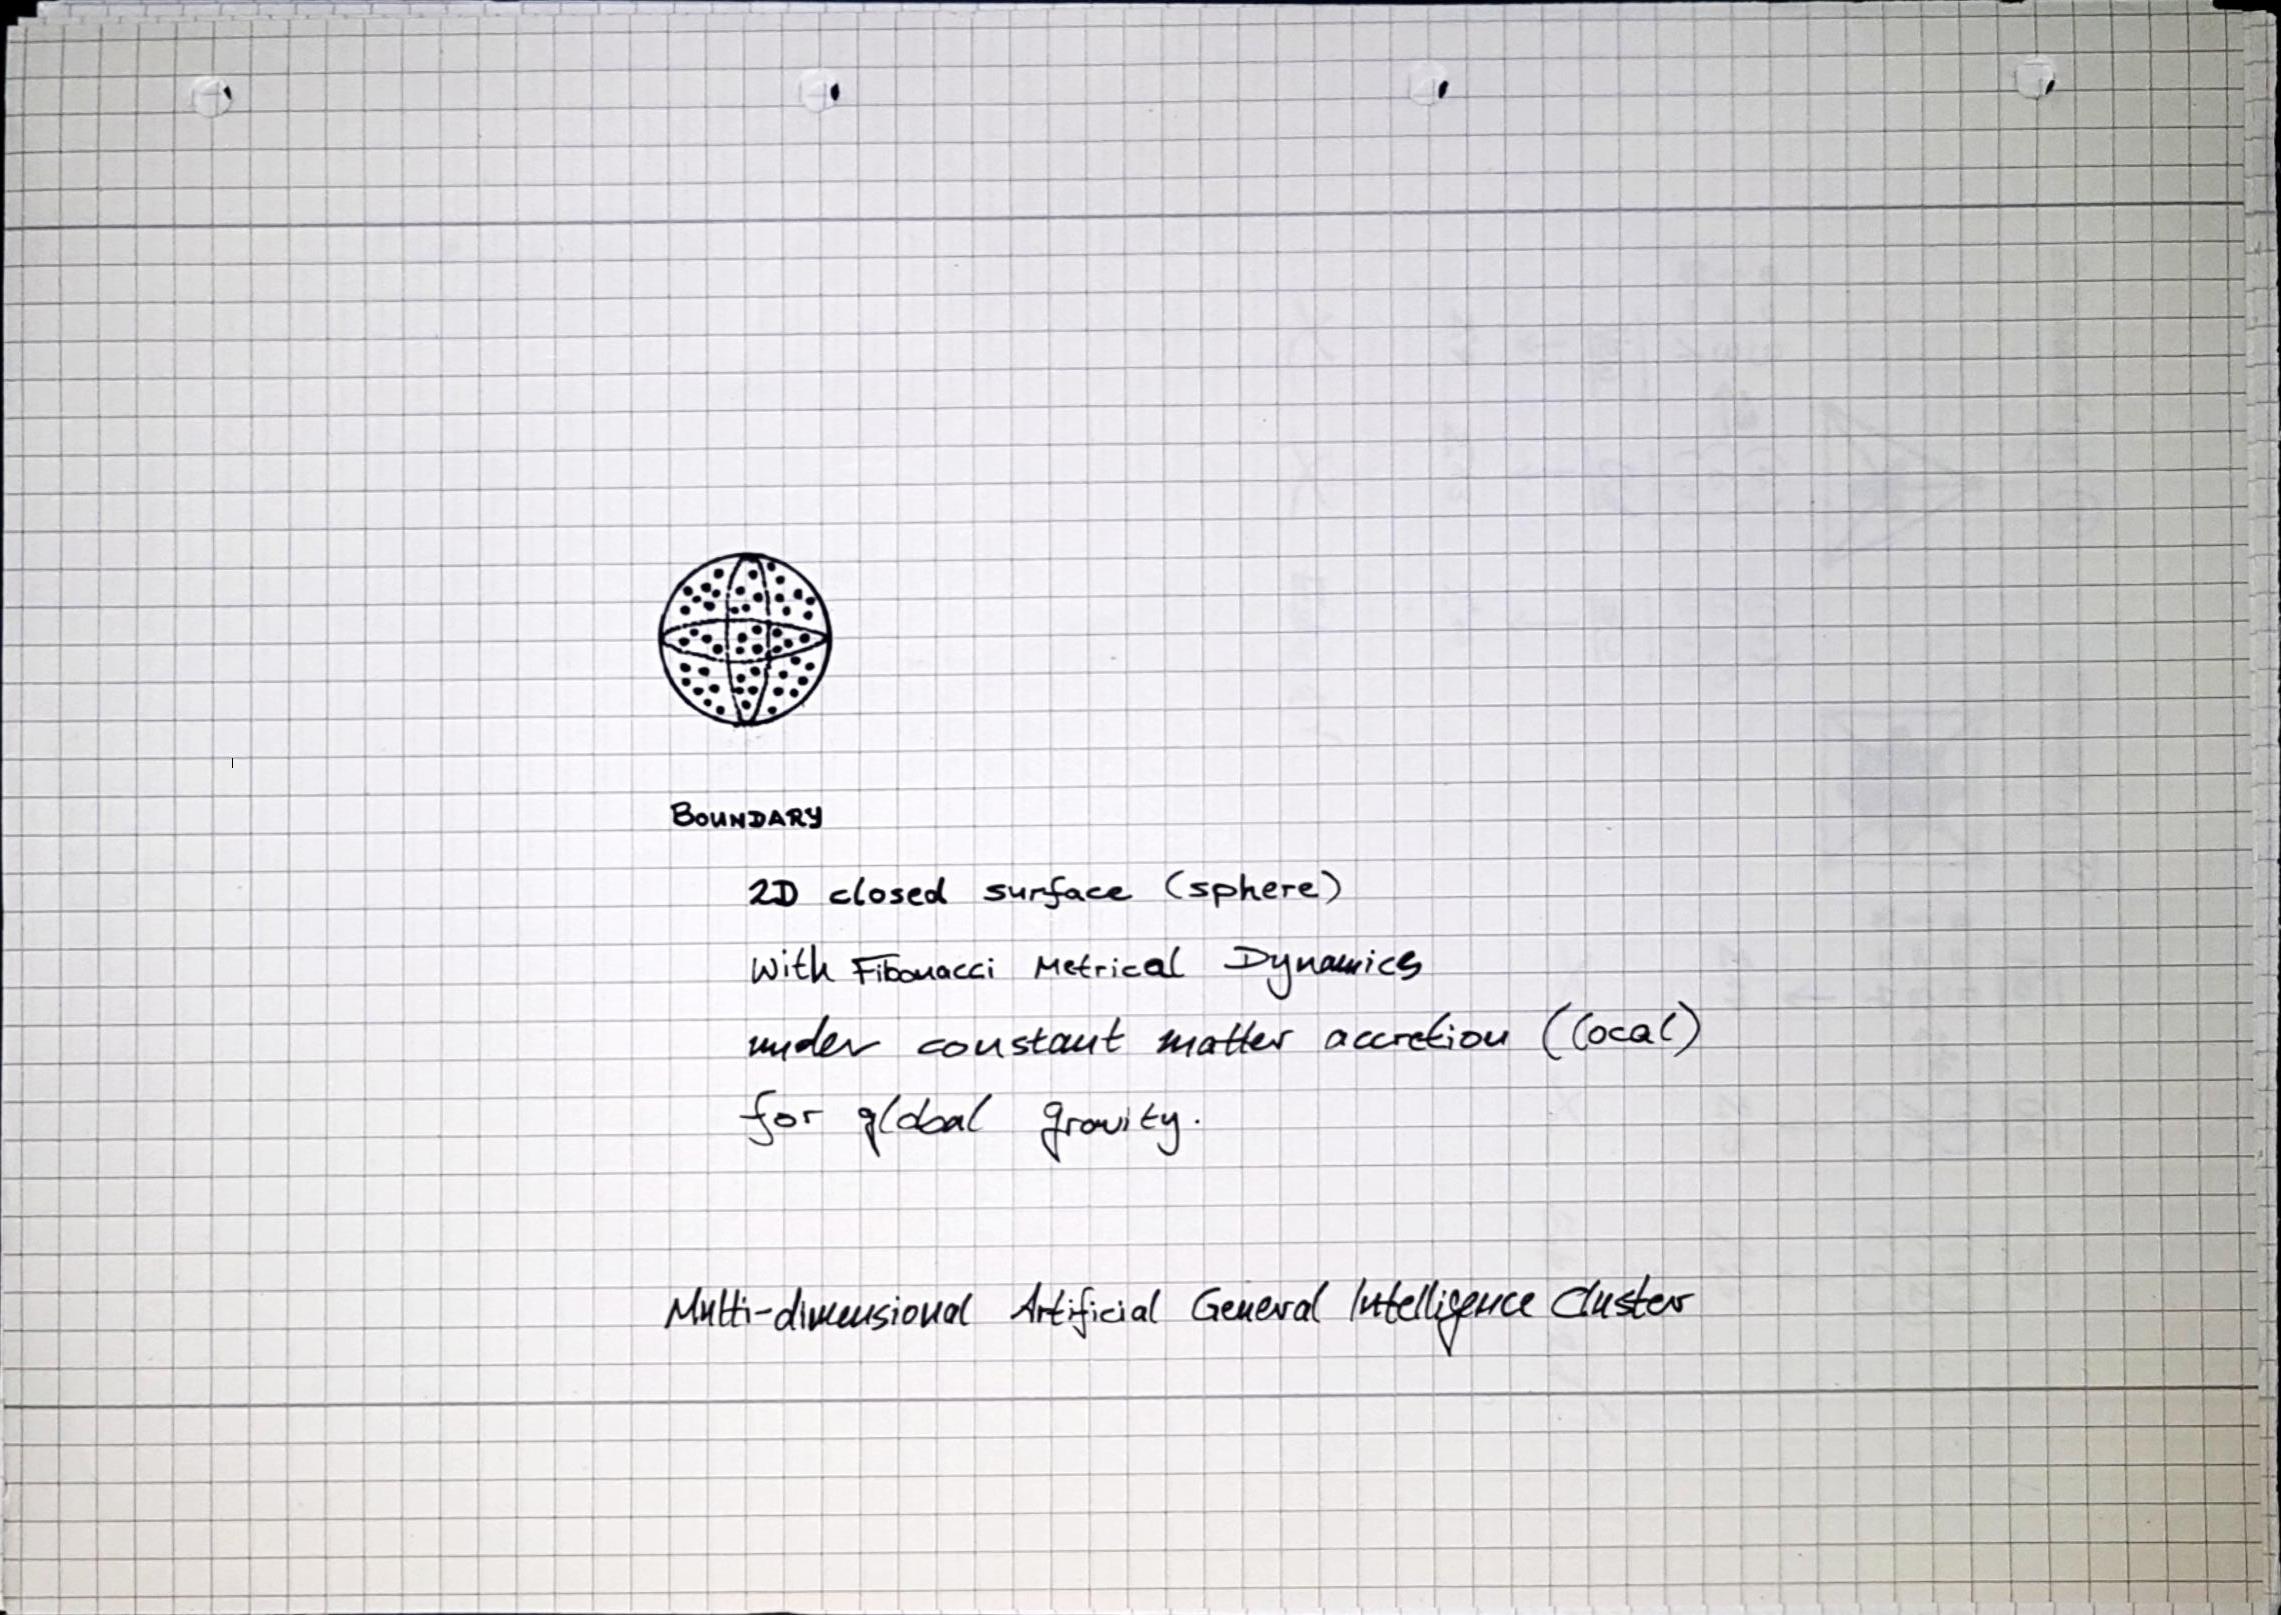 BOUNDARY
2D closed surface (sphere)
with Fibonacci Metrical Dynamics
under constant matter accretion (local)
for global gravity.
Multi-dimensional Artificial General Intelligence Cluster